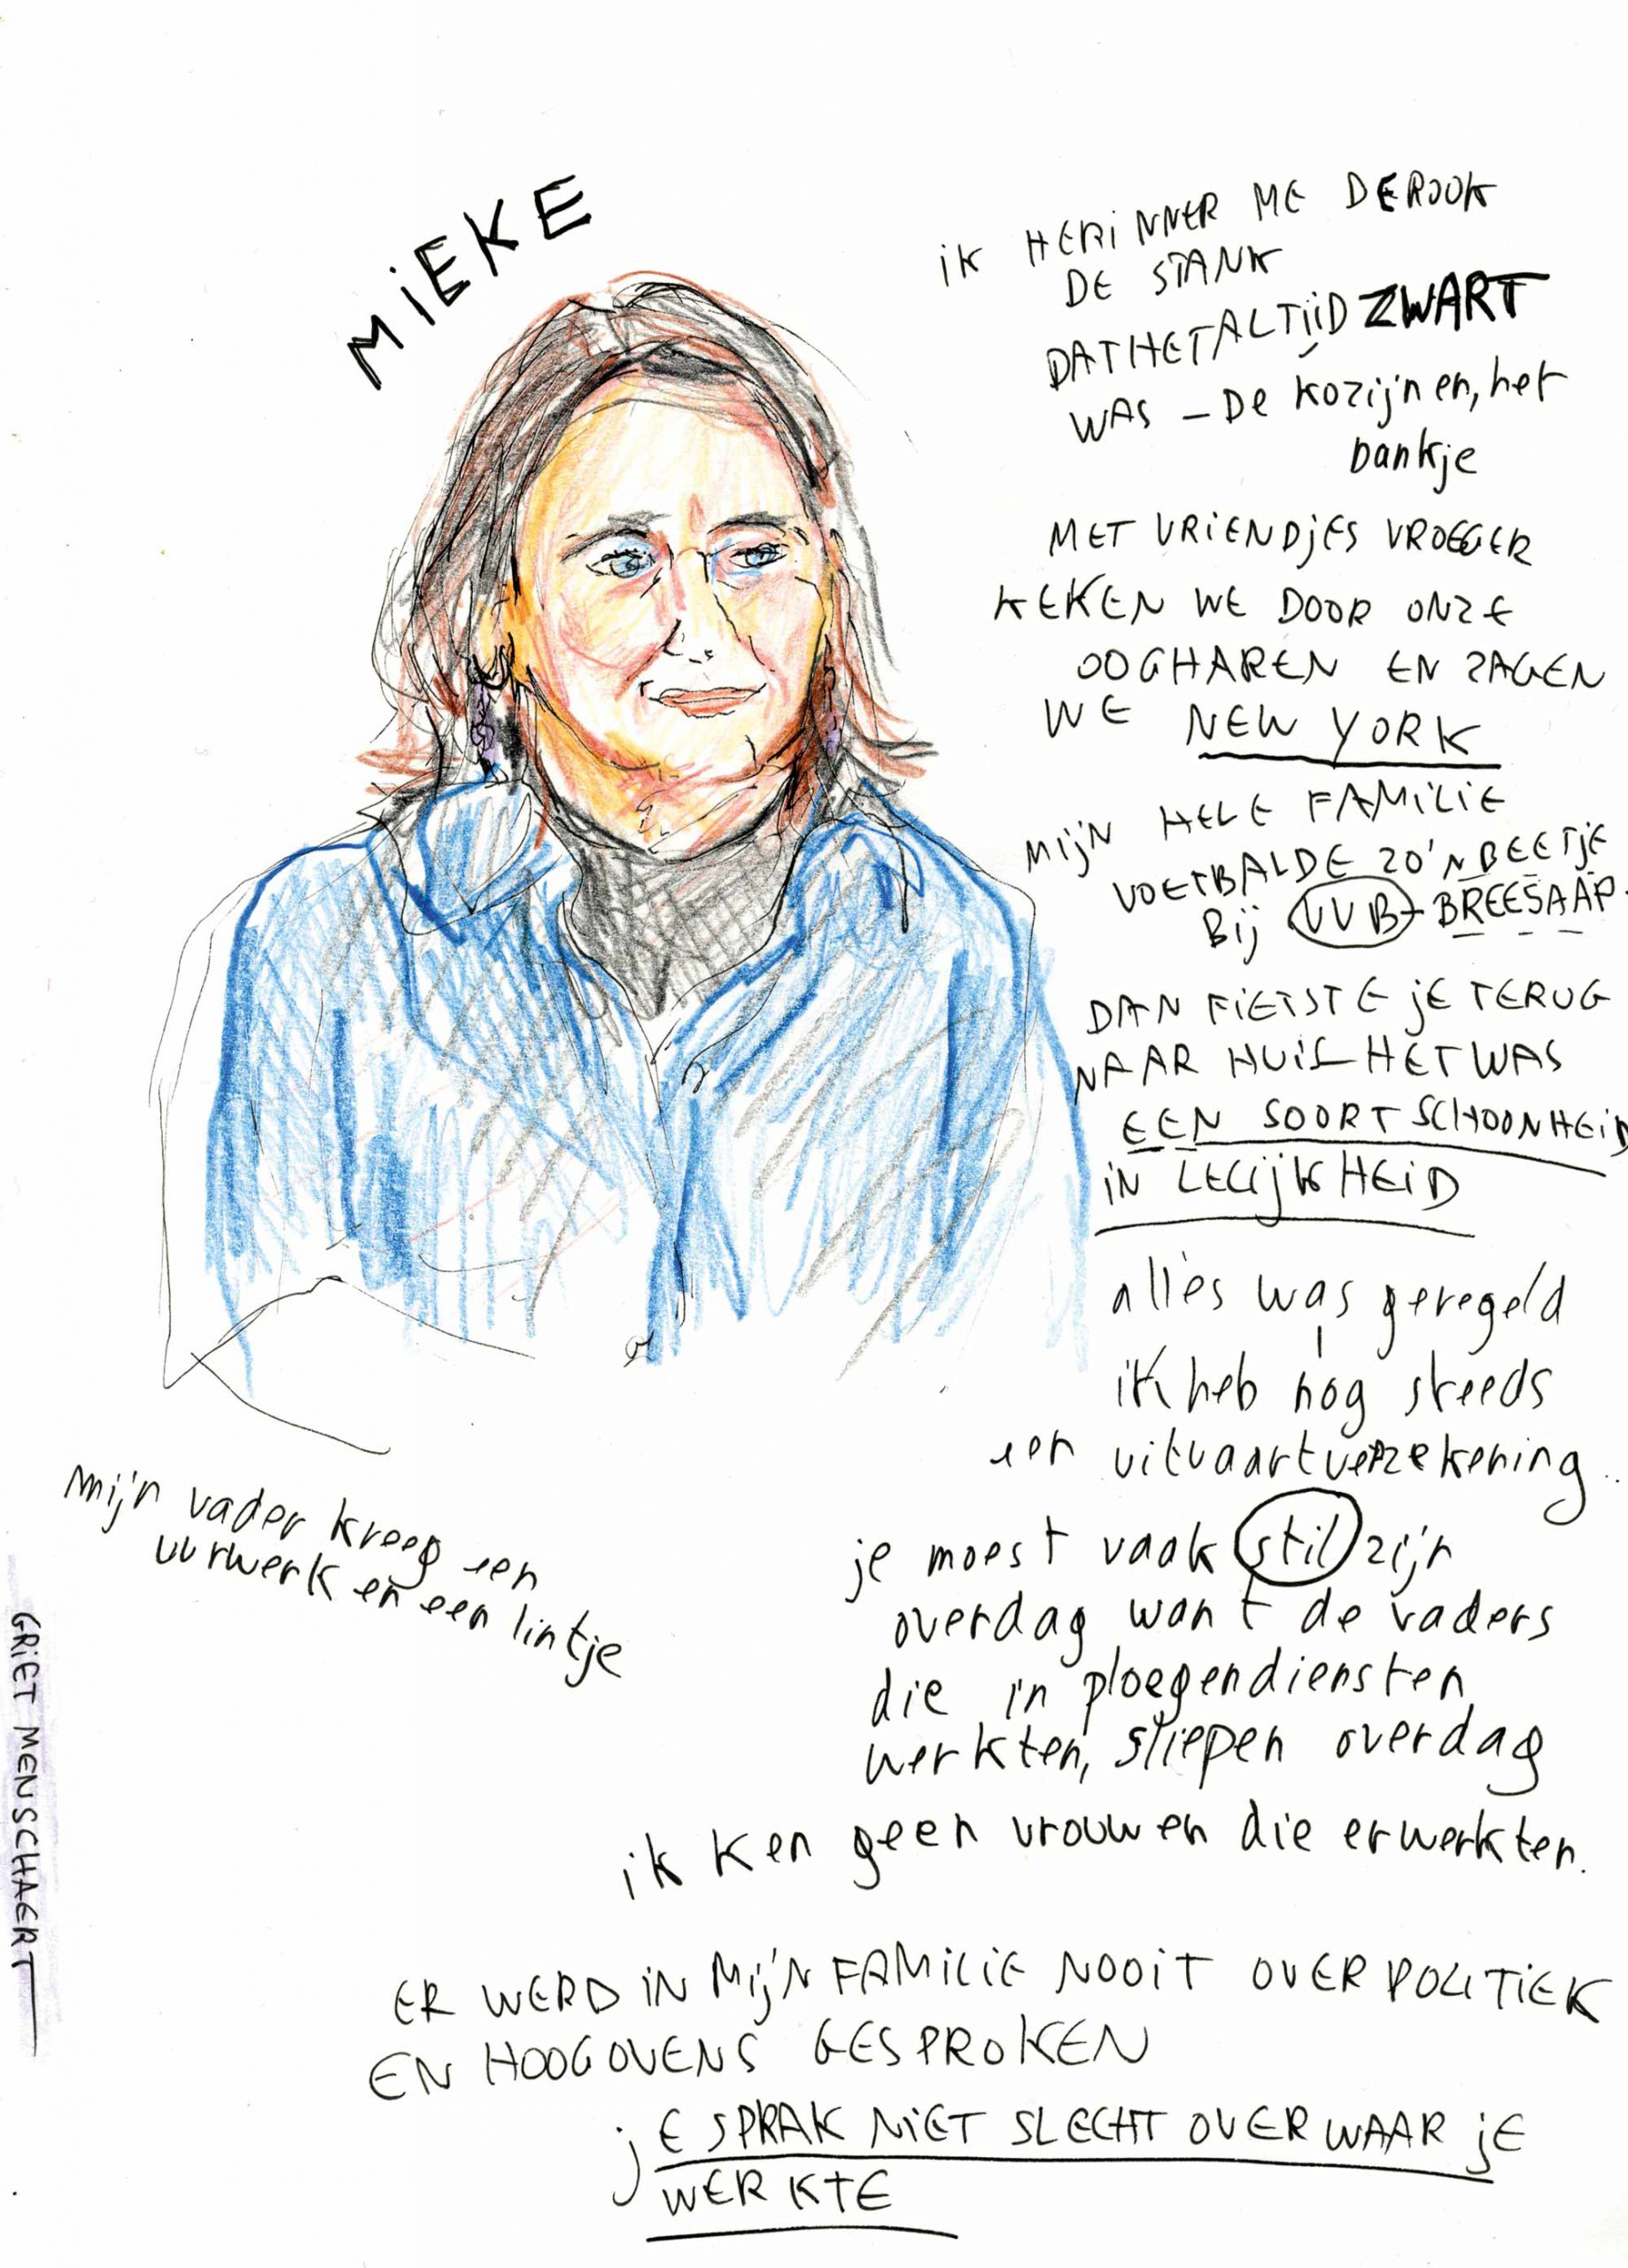 MiEKE
iK HERiNNER ME DE ROOK
DE STANK
DAT HET ALTijD ZWART
WAS – De kozijnen, het
bankje
MET VRiENDjES VROEGER
KEKEN WE DOOR ONZE
OOGHAREN EN ZAGEN
WE NEW YORK
Mij'N HELE FAMiLiE
VOETBALDE ZO'N BEETjE
Bij VVB – BREESAAP.
DAN FiETSTE jE TERUG
NAAR HUiS – HET WAS
EEN SOORT SCHOONHEiD
iN LELijKHEiD
alles was geregeld
ik heb nog steeds
een uitvaartverzekering..
Mij'n vader kreeg een
uurwerk en een lintje
je moest vaak stil zijn
overdag want de vaders
die in ploegendiensten
werkten, sliepen overdag
ik ken geen vrouwen die er werkten.
ER WERD iN Mij'N FAMiLiE NOOiT OVER POLiTiEK
EN HOOGOVENS GESPROKEN
jE SPRAK NiET SLECHT OVER WAAR jE
WERKTE
GRiET MENSCHAERT